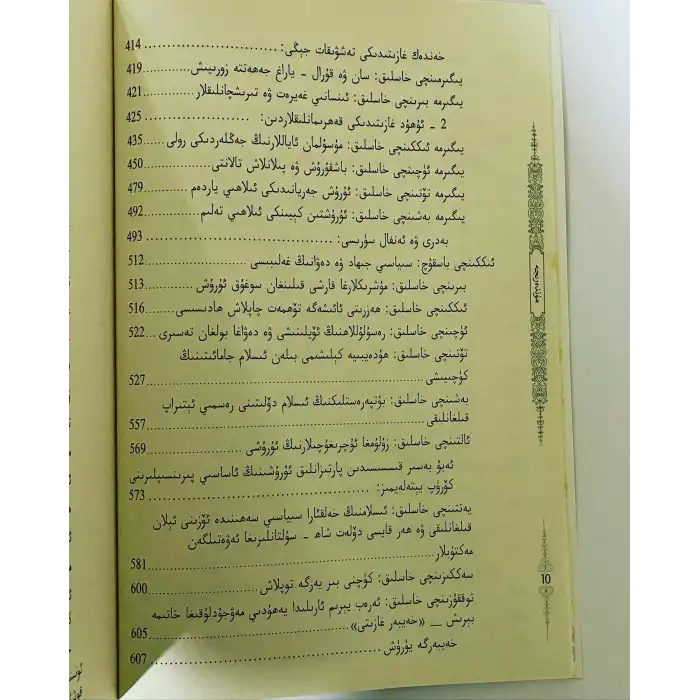 خەندەك غازىتىدىكى تەشۋىقات جېڭى: ........ 414
يىگىرمىنچى خاسلىق: سان ۋە قۇرال - ياراغ جەھەتتە زورىيىش ........ 419
يىگىرمە بىرىنچى خاسلىق: ئىنسانىي غەيرەت ۋە تىرىشچانلىقلار ........ 421
2 - ئۇھۇد غازىتىدىكى قەھرىمانلىقلاردىن: ........ 425
يىگىرمە ئىككىنچى خاسلىق: مۇسۇلمان ئاياللارنىڭ جەڭلەردىكى رولى ........ 435
يىگىرمە ئۈچىنچى خاسلىق: باشقۇرۇش ۋە پىلانلاش تالانتى ........ 450
يىگىرمە تۆتىنچى خاسلىق: ئۇرۇش جەريانىدىكى ئىلاھىي ياردەم ........ 479
يىگىرمە بەشىنچى خاسلىق: ئۇرۇشتىن كېيىنكى ئىلاھىي تەلىم ........ 492
بەدرى ۋە ئەنفال سۈرىسى: ........ 493
ئىككىنچى باسقۇچ: سىياسىي جىھاد ۋە دەۋانىڭ غەلىبىسى ........ 512
بىرىنچى خاسلىق: مۇشرىكلارغا قارشى قىلىنغان سوغۇق ئۇرۇش ........ 513
ئىككىنچى خاسلىق: ھەزرىتى ئائىشەگە تۆھمەت چاپلاش ھادىسىسى ........ 516
ئۈچىنچى خاسلىق: رەسۇلۇللاھنىڭ ئۆيلىنىشى ۋە دەۋاغا بولغان تەسىرى ... 522
تۆتىنچى خاسلىق: ھۇدەيبىيە كېلىشىمى بىلەن ئىسلام جامائىتىنىڭ
كۈچىيىشى ........ 527
بەشىنچى خاسلىق: بۇتپەرەستلىكنىڭ ئىسلام دۆلىتىنى رەسمىي ئېتىراپ
قىلغانلىقى ........ 557
ئالتىنچى خاسلىق: زۇلۇمغا ئۇچرىغۇچىلارنىڭ ئۇرۇشى ........ 569
ئەبۇ بەسىر قىسسىسىدىن پارتىزانلىق ئۇرۇشىنىڭ ئاساسىي پىرىنسىپلىرىنى
كۆرۈپ يېتەلەيمىز: ........ 573
يەتتىنچى خاسلىق: ئىسلامنىڭ خەلقئارا سىياسىي سەھنىدە ئۆزىنى ئېلان
قىلغانلىقى ۋە ھەر قايسى دۆلەت شاھ - سۇلتانلىرىغا ئەۋەتىلگەن
مەكتۇبلار ........ 581
سەككىزىنچى خاسلىق: كۈچنى بىر يەرگە توپلاش ........ 600
توققۇزىنچى خاسلىق: ئەرەب يېرىم ئارىلىدا يەھۇدىي مەۋجۇدلۇقىغا خاتىمە
بېرىش — «خەيبەر غازىتى» ........ 605
خەيبەرگە يۈرۈش ........ 607
مۇندەرىجە
10